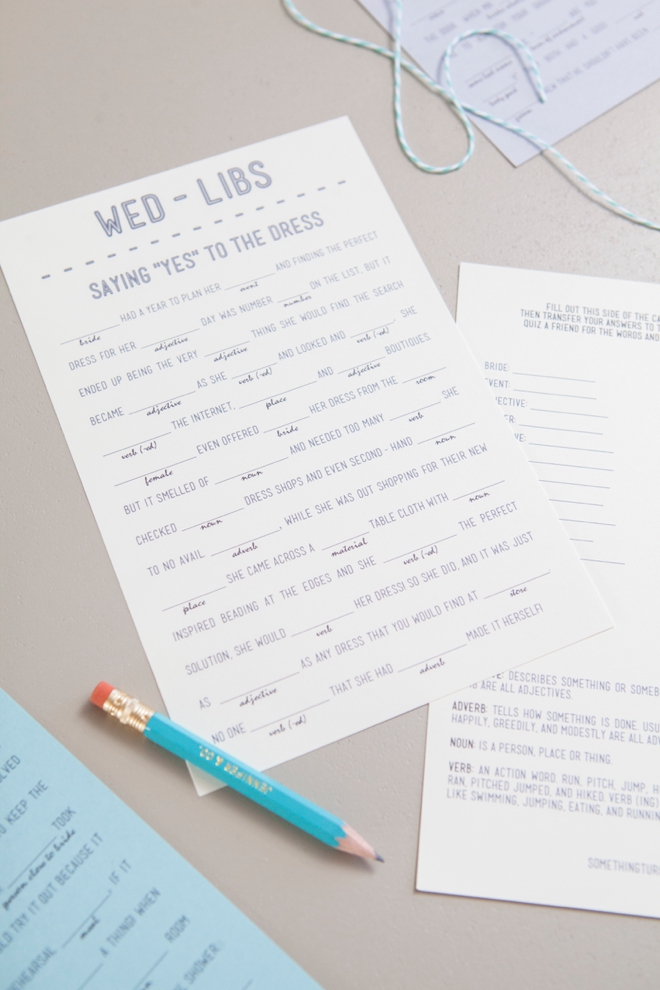 WED - LIBS
SAYING "YES" TO THE DRESS
HAD A YEAR TO PLAN HER AND FINDING THE PERFECT
bride event
DRESS FOR HER DAY WAS NUMBER ON THE LIST, BUT IT
adjective number
ENDED UP BEING THE VERY THING SHE WOULD FIND. THE SEARCH
adjective
BECAME AS SHE AND LOOKED AND . SHE
adjective verb (-ed) verb (-ed)
THE INTERNET, AND BOUTIQUES.
verb (-ed) place adjective
EVEN OFFERED HER DRESS FROM THE
female bride room
BUT IT SMELLED OF AND NEEDED TOO MANY . SHE
noun verb
CHECKED DRESS SHOPS AND EVEN SECOND-HAND
noun noun
TO NO AVAIL. , WHILE SHE WAS OUT SHOPPING FOR THEIR NEW
adverb
SHE CAME ACROSS A TABLE CLOTH WITH
place material noun
INSPIRED BEADING AT THE EDGES AND SHE THE PERFECT
verb (-ed)
SOLUTION. SHE WOULD HER DRESS! SO SHE DID, AND IT WAS JUST
verb
AS AS ANY DRESS THAT YOU WOULD FIND AT
adjective store
NO ONE THAT SHE HAD MADE IT HERSELF!
verb (-ed) adverb
FILL OUT THIS SIDE OF THE CA
THEN TRANSFER YOUR ANSWERS TO T
QUIZ A FRIEND FOR THE WORDS AND
BRIDE:
EVENT:
JECTIVE:
ER:
VE:
VE: DESCRIBES SOMETHING OR SOMEB
ARE ALL ADJECTIVES.
ADVERB: TELLS HOW SOMETHING IS DONE. USU
HAPPILY, GREEDILY, AND MODESTLY ARE ALL ADV
NOUN: IS A PERSON, PLACE OR THING.
VERB: AN ACTION WORD. RUN, PITCH, JUMP, H
RAN, PITCHED JUMPED, AND HIKED. VERB (ING)
LIKE SWIMMING, JUMPING, EATING, AND RUNNIN
SOMETHINGTUR
OLVED
KEEP THE
TOOK
person close to bride
ULD TRY IT OUT BECAUSE IT
. IF IT
meal
EHEARSAL A THING! WHEN
ROOM
SHOWER: